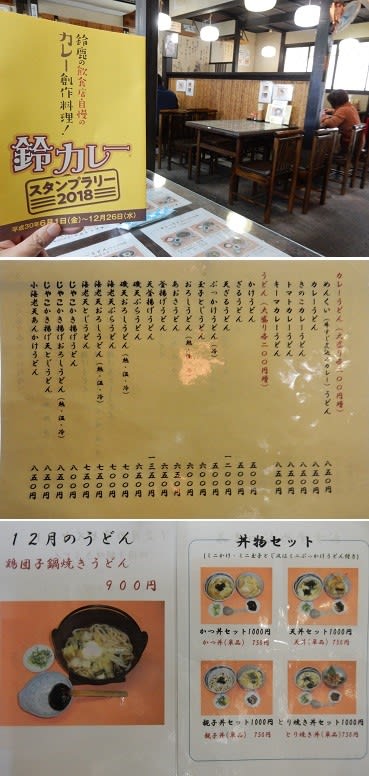 鈴鹿の飲食店自慢の
カレー創作料理!
鈴カレー
スタンプラリー
2018
平成30年6月1日(金)~12月26日(水)
カレーうどん(大盛り各二〇〇円増)
カレーうどん
きのこカレーうどん
トマトカレーうどん
キーマカレーうどん 八五〇円
うどん(大盛り各二〇〇円増)
かけうどん 五〇〇円
ざるうどん 五〇〇円
天ざるうどん 一二〇〇円
ぶっかけうどん(冷) 五〇〇円
玉子とじうどん 六〇〇円
おろしうどん(熱・冷) 六〇〇円
あおさうどん 六五〇円
釜揚げうどん 六五〇円
天釜揚げうどん 一三五〇円
磯天ぷらうどん 六五〇円
磯天おろしうどん(熱・温・冷) 七〇〇円
海老天ぷらうどん 七〇〇円
海老天おろしうどん(熱・温・冷) 七五〇円
海老天とじうどん 七五〇円
じゃこかき揚げうどん 八〇〇円
じゃこかき揚げおろしうどん(熱・温・冷) 八五〇円
じゃこかき揚げ天とじうどん 八五〇円
小海老天あんかけうどん 八五〇円
12月のうどん
鶏団子鍋焼きうどん
900円
丼物セット
(ミニかけ・ミニ玉子とじ又はミニぶっかけうどん付き)
かつ丼セット1000円
かつ丼(単品) 750円
天丼セット1000円
天丼(単品) 750円
親子丼セット1000円
親子丼(単品) 750円
とり焼き丼セット1000円
とり焼き丼(単品)750円